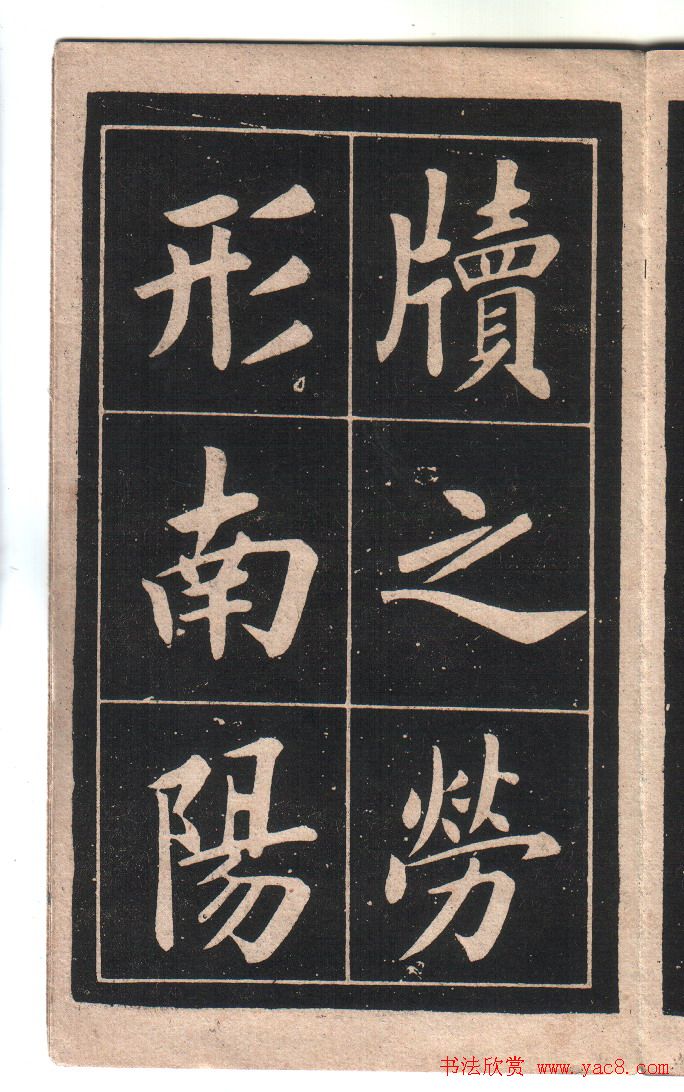 牘之勞
形南陽
书法欣赏 www.yac8.com